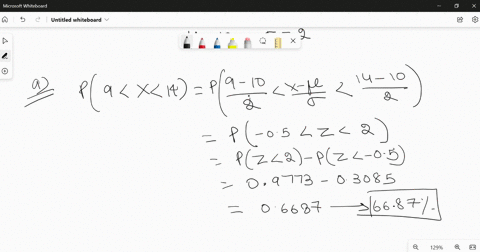 Microsoft Whiteboard
Untitled whiteboard
a) P(9 < X < 14) = P(9-10/2 < x-μ/σ < 14-10/2)
= P(-0.5 < Z < 2)
= P(Z < 2) - P(Z < -0.5)
= 0.9773 - 0.3085
= 0.6687 → 66.87%.
129%